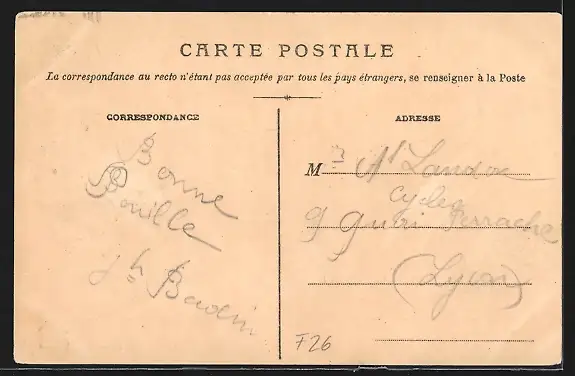 CARTE POSTALE
La correspondance au recto n'étant pas acceptée par tous les pays étrangers, se renseigner à la Poste
CORRESPONDANCE
Bonne
Bouille
ADRESSE
M
Cycles
9 Perrache
(Lyon)
F26